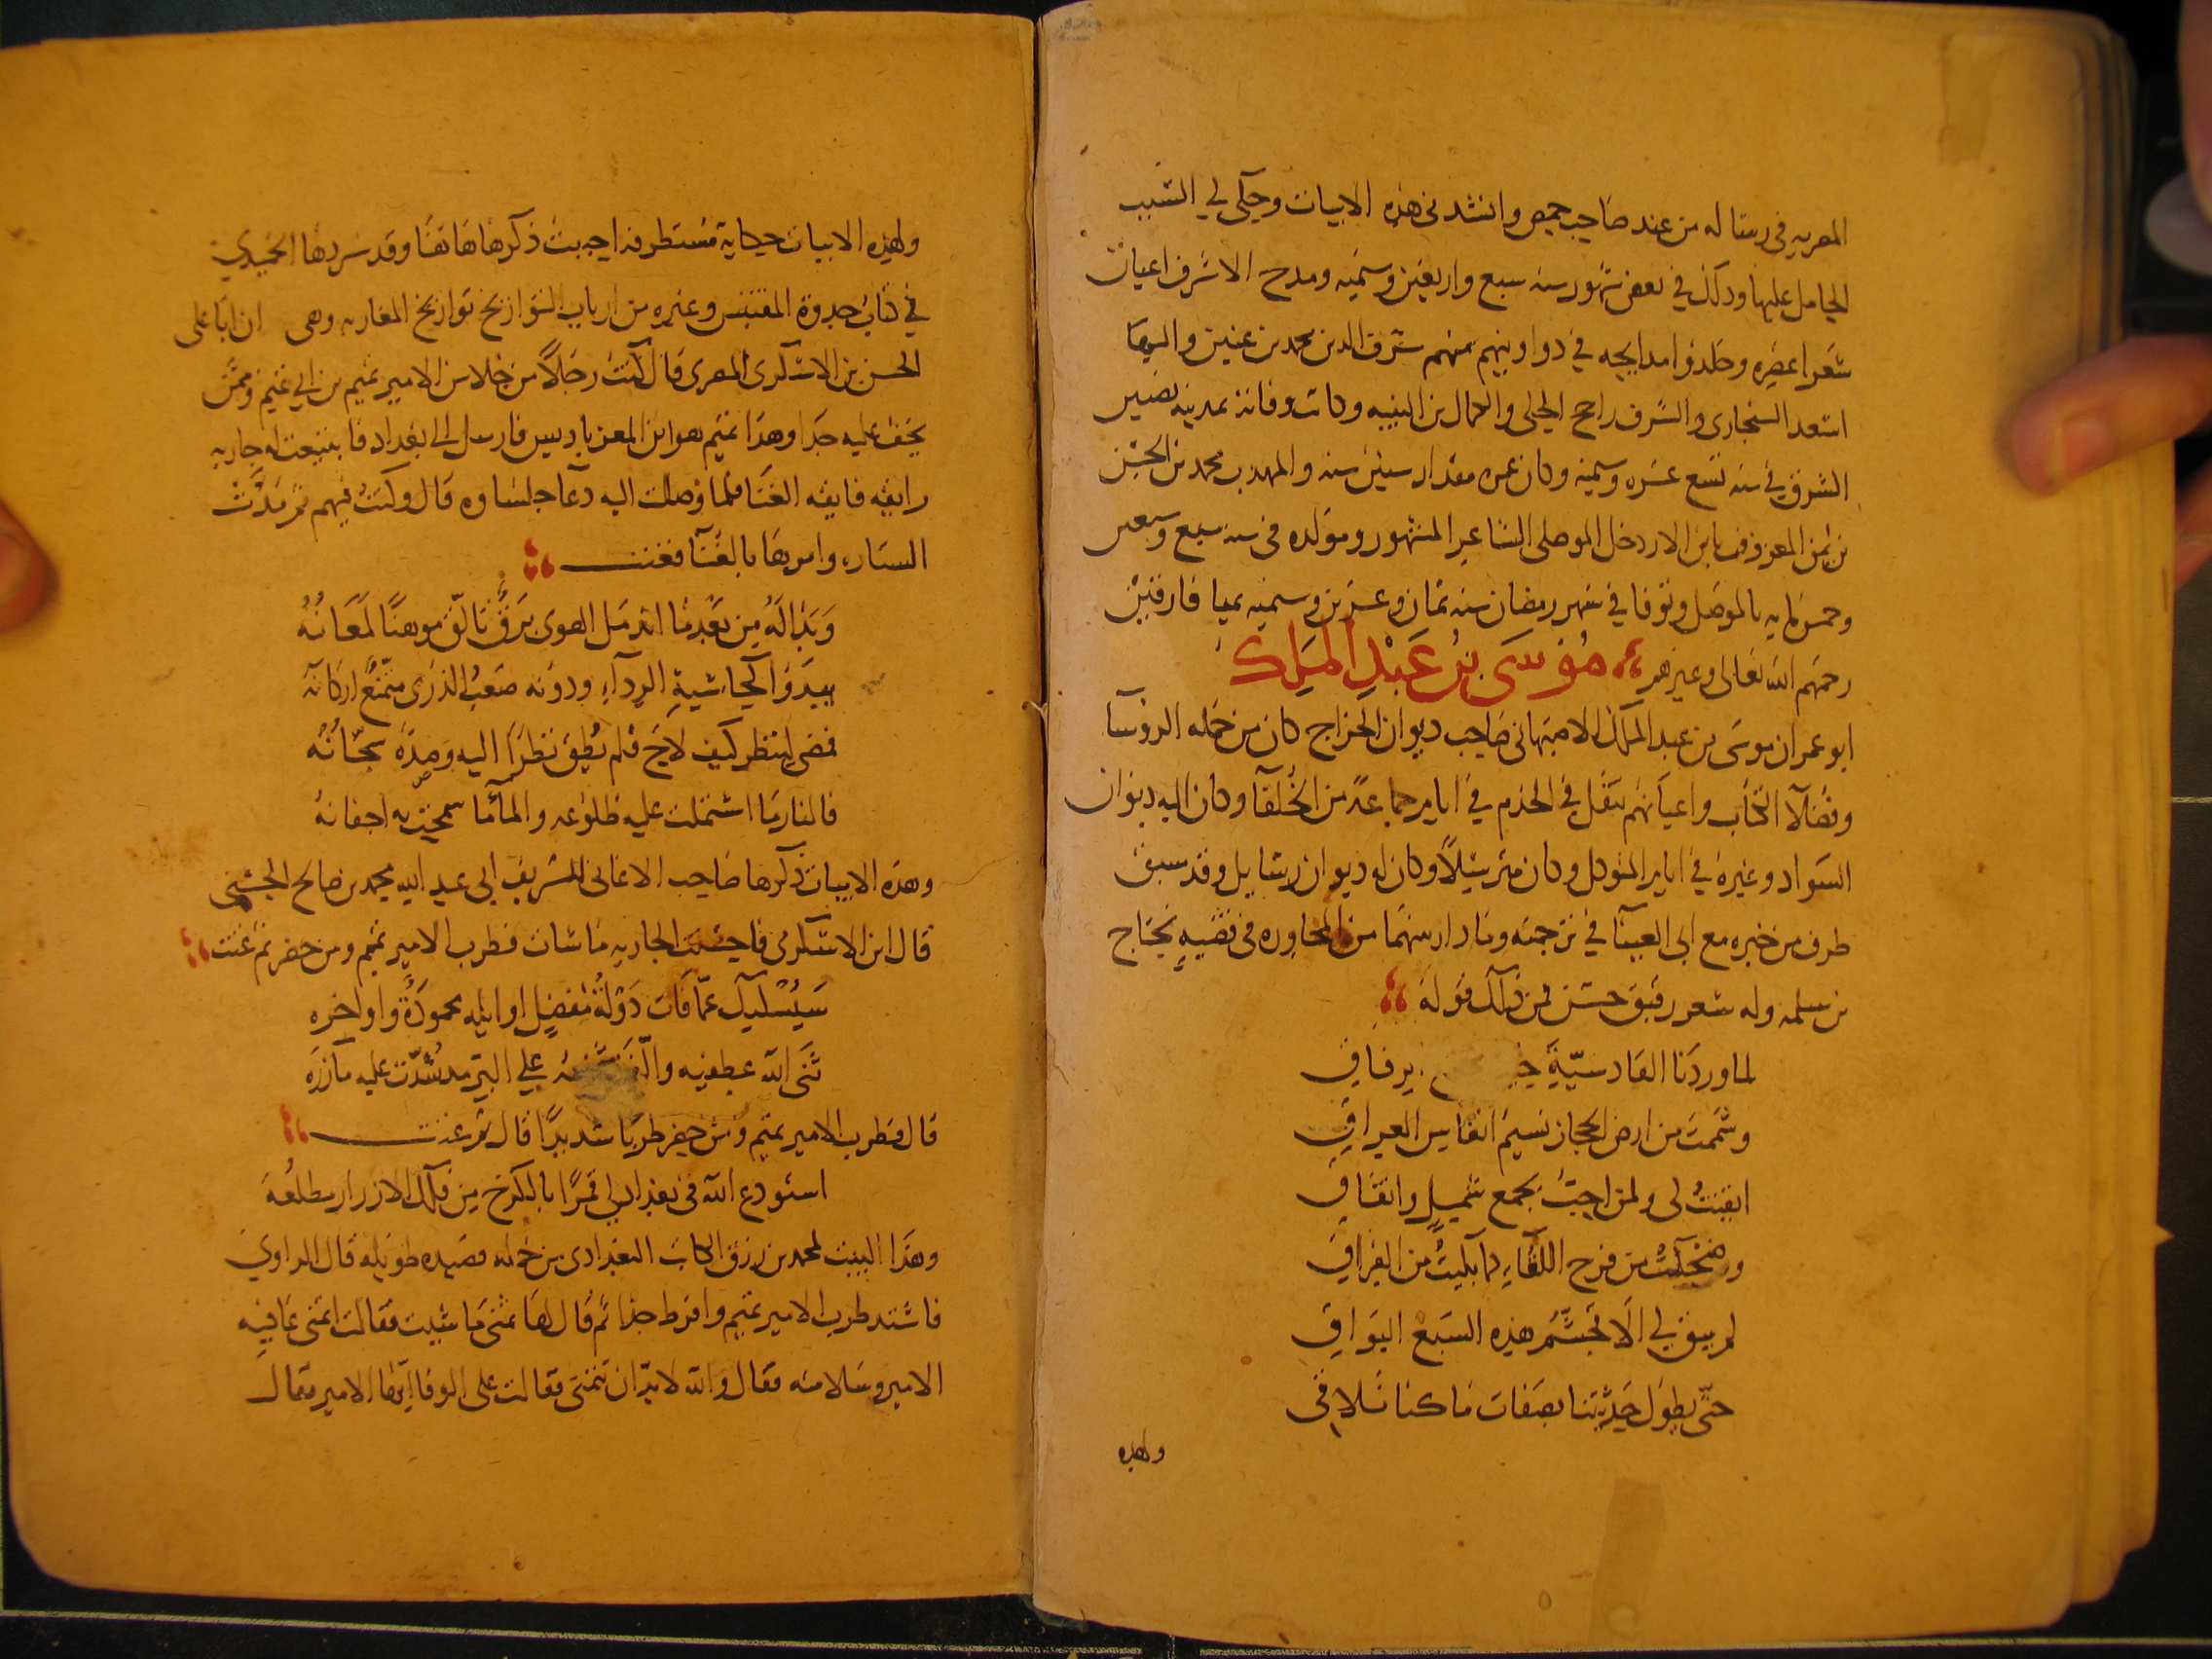 المصريه في رساله من عند صاحب حمص وانشدني هذه الابيات وحكى لي السبب
الحامل عليها وذلك في بعض شهور سنه سبع واربعين وستميه ومدح الاشرف اعيان
شعرا عصره وخلدوا مدايحه في دواوينهم منهم شرف الدين محمد بن عنين والبها
اسعد السنجارى والشرف راجح الحلى والكمال بن النبيه وكانت وفاته بمدينه نصيبين
الشرق في سنه تسع عشره وستميه وكان عمره مقدار ستين سنه والمهذب محمد بن الحسن
بن يمن المعروف بابن الاردخل الموصلى الشاعر المشهور ومولده في سنه سبع وسبعين
وخمس مايه بالموصل وتوفا في شهر رمضان سنه ثمان وعشرين وستميه بميا فارقين
رحمهم الله تعالى وغيرهم موسى بن عبد الملك
ابو عمران موسى بن عبد الملك الاصبهانى صاحب ديوان الخراج كان من جمله الروسآ
وفضلآ الكتاب واعيانهم تنقل في الخدم في ايام جماعة من الخلفآ وكان اليه ديوان
السواد وغيره في ايام المتوكل وكان مترسلاً وكان له ديوان رسايل وقد سبق
طرف من خبره مع ابى العينآ في ترجمته وما دار بينهما من المحاوره في قضيه نجاح
بن سلمه وله شعر رقيق حسن فمن ذلك قوله
لما وردنا القادسيّة رفاقِ
وشممت من ارض الحجاز نسيم انفاس العراقِ
ايقنتُ لى ولمن احبّ بجمع شملٍ واتفاقِ
وضحكتُ من فرح اللقآءِ كما بكيتُ من الفراقِ
لم يبق لي الّا تجشّم هذه السبع البواقِ
حتّى يطول حديثنا بصفات ما كنا نلاقى
ولهذه
ولهذه الابيات حكاية مستطرفه احببت ذكرها هاهنا وقد سردها الحميدي
في كتاب جدوة المقتبس وغيره من ارباب التواريخ تواريخ المغاربه وهى ان ابا على
الحسن بن الاشكرى المصرى قال كنتُ رجلاً من جلاس الامير تميم بن ابي تميم وممّن
يخف عليه جدا وهذا تميم هو ابن المعز باديس فارسل الى بغداد فابتيعت له جاريه
رايقه فايقه الغنا فلما وصلت اليه دعا جلساوه قال وكنتُ فيهم ثم مدّت
الستاره وامرها بالغنآ فغنت
وَبَدَا لَهُ مِن بَعدِ مَا اندَمَل الهوى بَرقٌ تالّق موهناً لَمَعَانُهُ
يبدو كحاشيةِ الردآءِ ودونه صَعبُ الذرى متمنّعٌ اركانه
فمضى لينظر كيف لاح فلم يُطِق نظراً اليه وصدّه سجّانُه
فالنار ما اشتملت عليه ظلوعه والمآ ما سمحت به اجفانهُ
وهذه الابيات ذكرها صاحب الاغانى للشريف ابي عبد الله محمد بن صالح الحسنى
قال ابن الاشكرى فاحسنت الجاريه ماشات فطرب الامير تميم ومن حضر ثم غنت
سَيُسليكَ عمّا فات دَوْلةُ مُفضلٍ اوايله محمودَةٌ واواخره
ثَنَى الله عِطفيه والّف شخصه على البرّ مذ شُدّت عليه مآزرَه
قال فطرب الامير تميم ومن حضر طرباً شديداً قال ثم غنت
استودع الله فى بغداد لي قمرًا بالكرخ من فلك الازرار مطلعُهَ
وهذا البيت لمحمد بن رزق الكاتب البغدادى من جمله قصيده طويله قال الراوي
فاشتد طرب الامير تميم وافرط جدًا ثم قال لها تمنّى ما شيت فقالت اتمنى عافيه
الامير وسلامته فقال والله لا بدّ ان تتمنى فقالت على الوفا ايّها الامير فقال